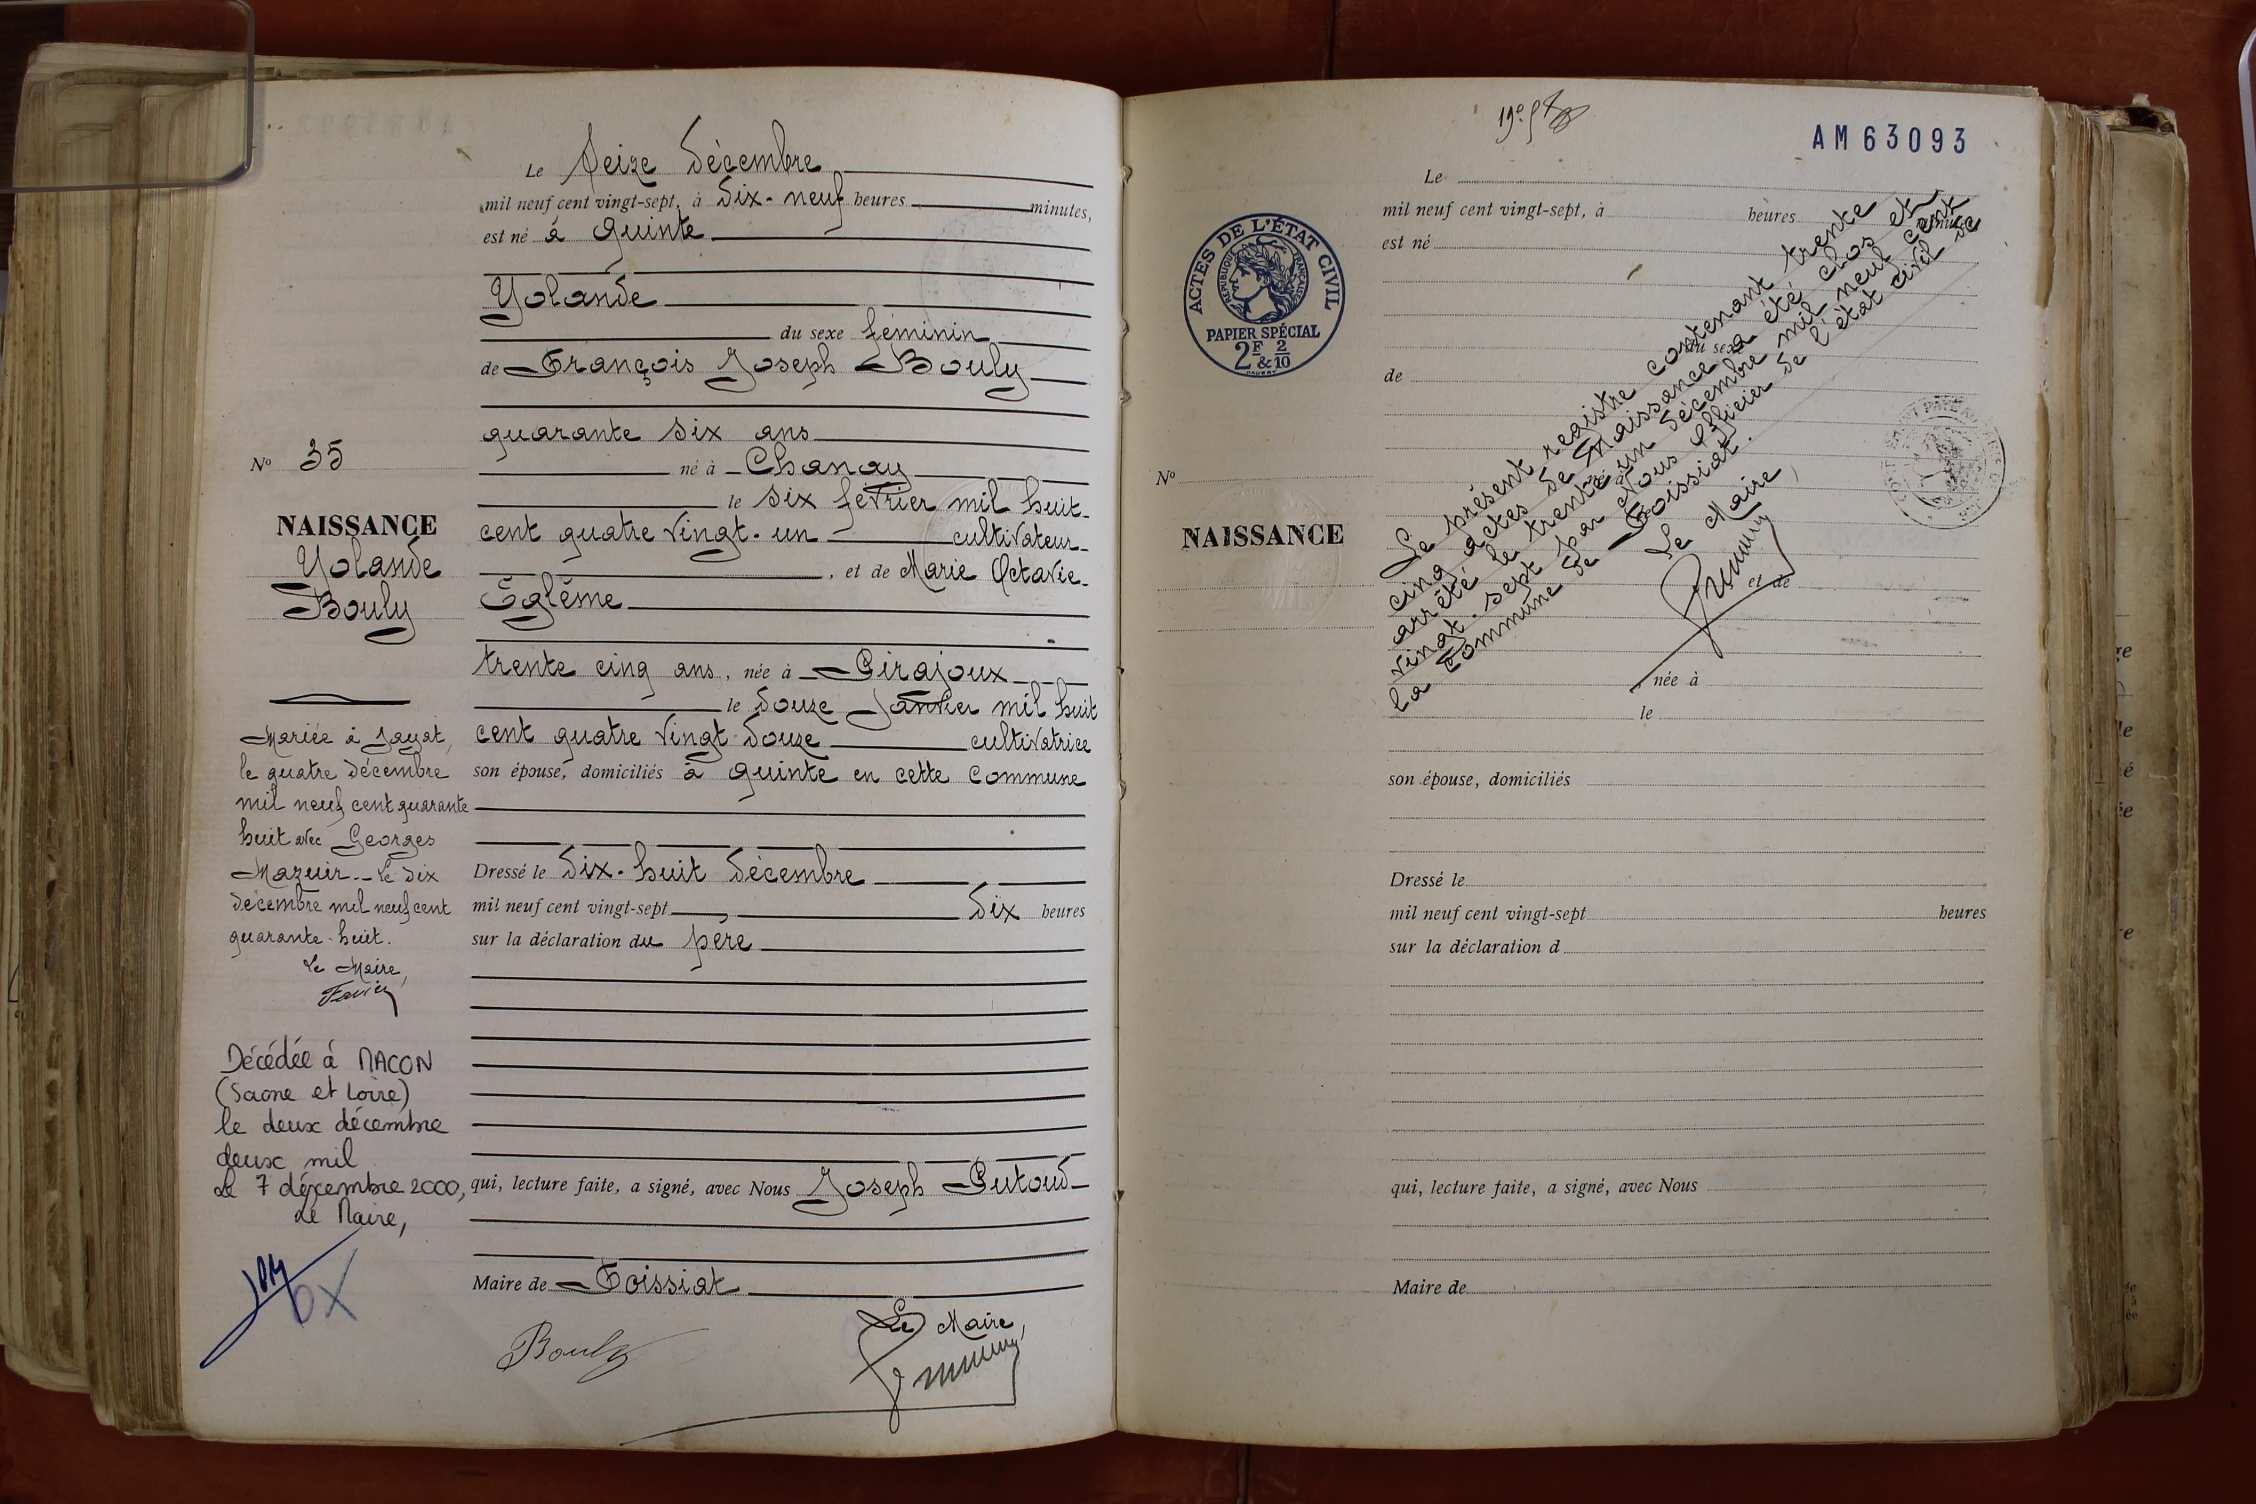 Le Seize Décembre
mil neuf cent vingt-sept, à Dix-neuf heures minutes,
est né à Quinte
Yolande
du sexe féminin
de François Joseph Bouly
quarante six ans
né à Chanay
le six février mil huit
cent quatre vingt-un cultivateur
, et de Marie Octavie
Eglême
trente cinq ans, née à Cirajoux
le Douze Janvier mil huit
cent quatre vingt Douze cultivatrice
son épouse, domiciliés à Quinte en cette commune
Dressé le Dix-huit Décembre
mil neuf cent vingt-sept Dix heures
sur la déclaration du père
qui, lecture faite, a signé, avec Nous Joseph Putoud
Maire de Foissiat
Le Maire,
Bouly
No 35
NAISSANCE
Yolande
Bouly
Mariée à Jayat,
le quatre Décembre
mil neuf cent quarante
huit avec Georges
Mazuir. Le Dix
Décembre mil neuf cent
quarante-huit.
Le Maire,
Décédée à MACON
(Saone et Loire)
le deux décembre
deux mil
Le 7 décembre 2000,
Le Maire,
19e
AM63093
ACTES DE L'ÉTAT CIVIL
RÉPUBLIQUE FRANÇAISE
PAPIER SPÉCIAL
2F & 2/10
No
NAISSANCE
Le
mil neuf cent vingt-sept, à heures minutes
est né
du sexe
de
et de
née à
le
son épouse, domiciliés
Dressé le
mil neuf cent vingt-sept heures
sur la déclaration d
qui, lecture faite, a signé, avec Nous
Maire de
Le présent registre contenant trente
cinq actes de Naissance a été clos et
arrêté le trente un Décembre mil neuf cent
vingt-sept par Nous Officier de l'état civil de
la Commune de Foissiat.
Le Maire,